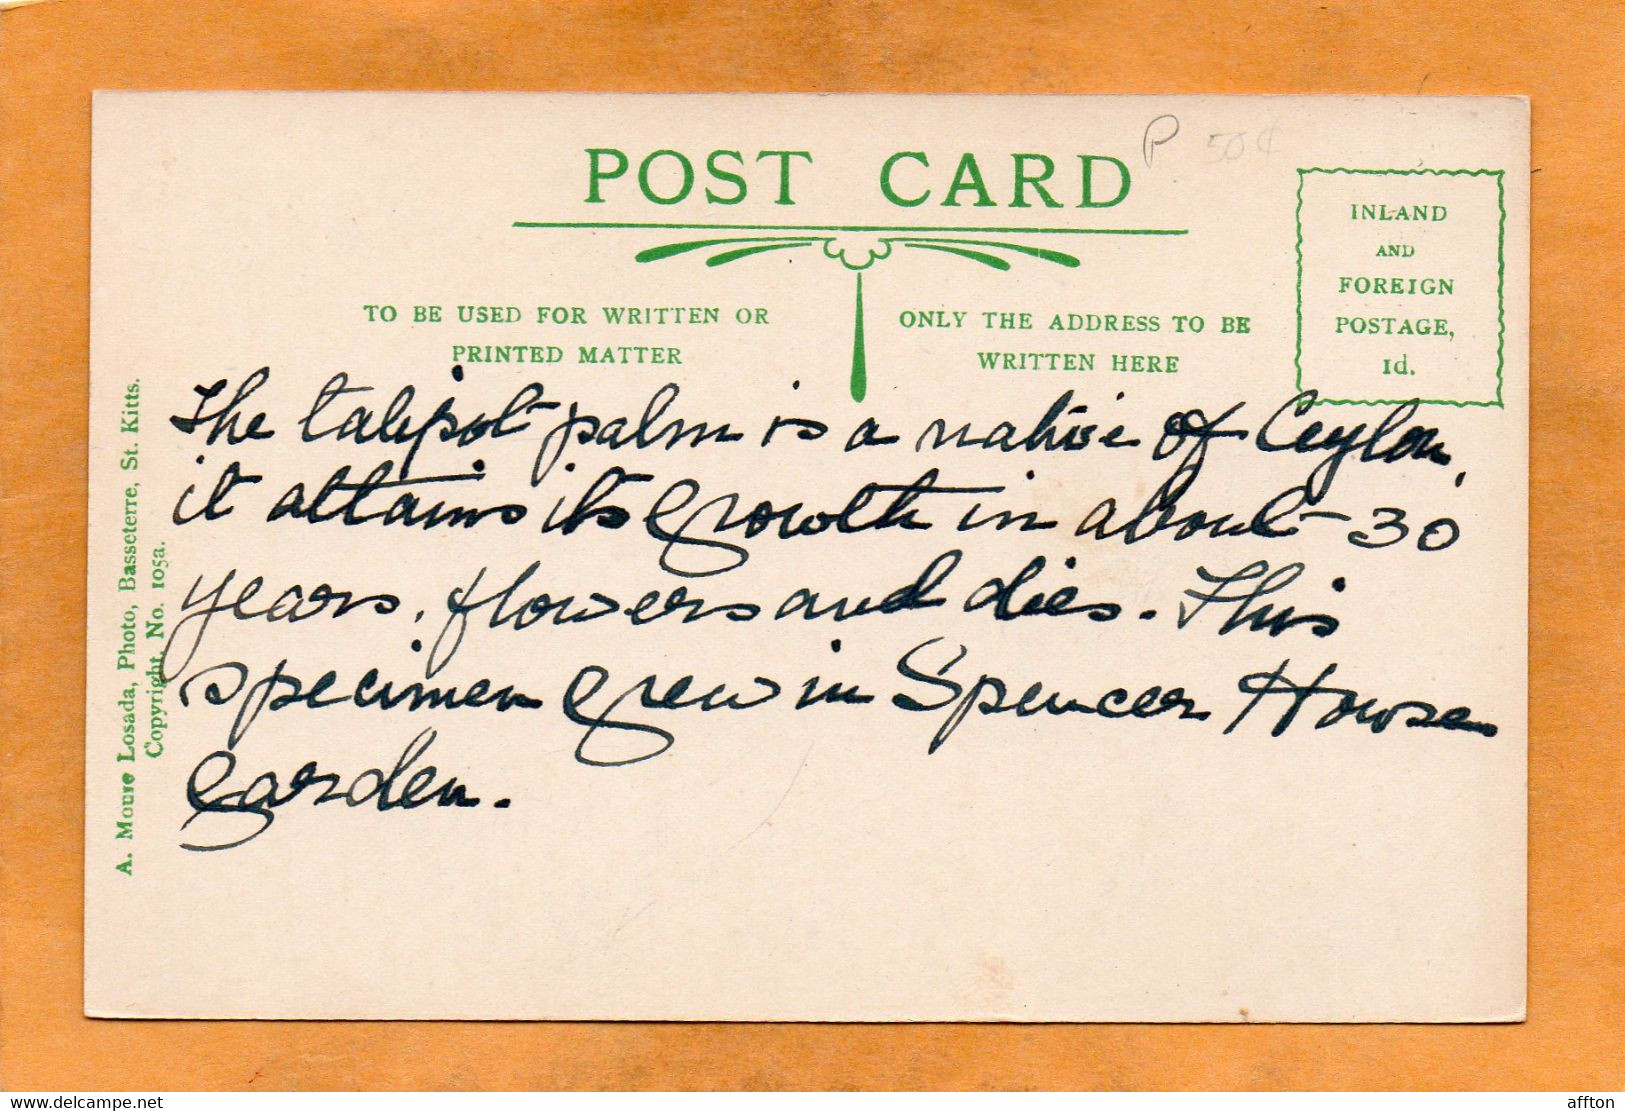 POST CARD
P 50¢
INLAND
AND
FOREIGN
POSTAGE,
1d.
TO BE USED FOR WRITTEN OR
PRINTED MATTER
ONLY THE ADDRESS TO BE
WRITTEN HERE
The talipot palm is a native of Ceylon,
it attains its growth in about 30
years, flowers and dies. This
specimen grew in Spencer House
garden.
A. Moure Losada, Photo, Basseterre, St. Kitts.
Copyright, No. 105a.
www.delcampe.net
affton